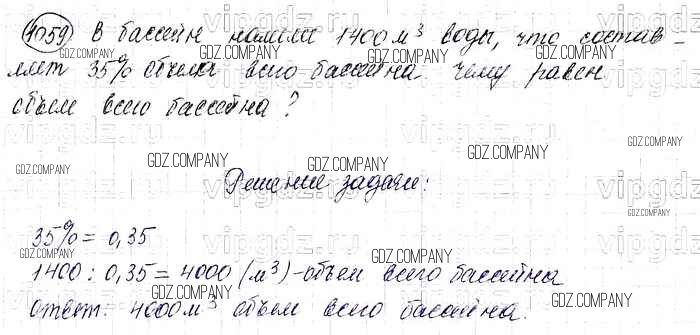 1059 В бассейн налили 1400 м³ воды, что состав-
ляет 35% объема всего бассейна. Чему равен
объем всего бассейна?
Решение задачи:
35% = 0,35
1400 : 0,35 = 4000 (м³) - объем всего бассейна
Ответ: 4000 м³ объем всего бассейна.